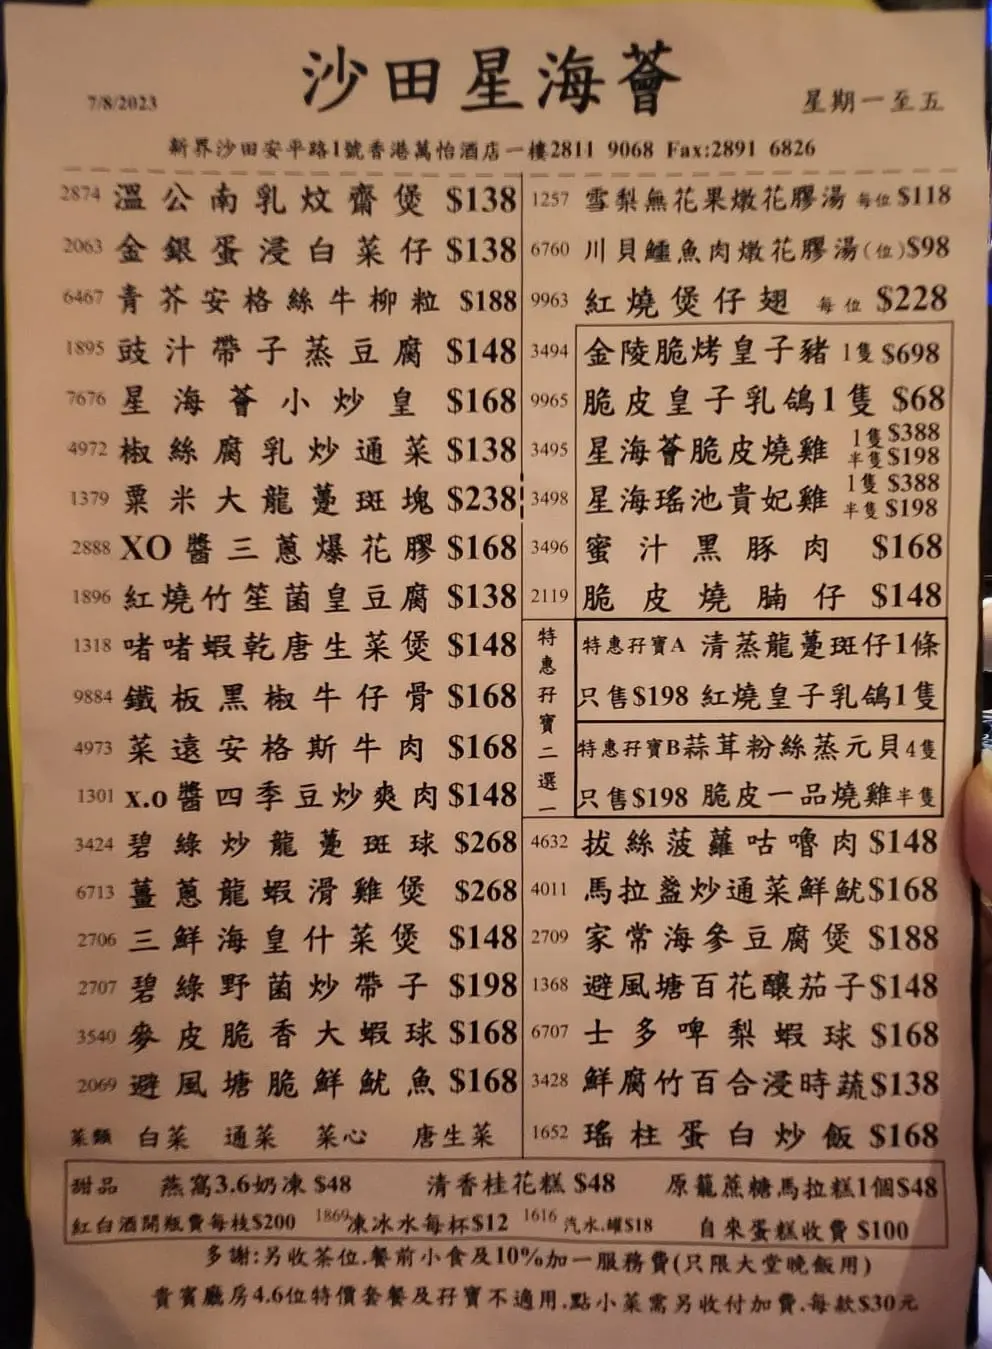 沙田星海薈
7/8/2023
星期一至五
新界沙田安平路1號香港萬怡酒店一樓2811 9068 Fax:2891 6826
2874 溫公南乳炆齋煲 $138
2063 金銀蛋浸白菜仔 $138
6467 青芥安格絲牛柳粒 $188
1895 豉汁帶子蒸豆腐 $148
7676 星海薈小炒皇 $168
4972 椒絲腐乳炒通菜 $138
1379 粟米大龍躉斑塊 $238
2888 XO醬三蔥爆花膠 $168
1896 紅燒竹笙菌皇豆腐 $138
1318 啫啫蝦乾唐生菜煲 $148
9884 鐵板黑椒牛仔骨 $168
4973 菜遠安格斯牛肉 $168
1301 x.o醬四季豆炒爽肉 $148
3424 碧綠炒龍躉斑球 $268
6713 薑蔥龍蝦滑雞煲 $268
2706 三鮮海皇什菜煲 $148
2707 碧綠野菌炒帶子 $198
3540 麥皮脆香大蝦球 $168
2069 避風塘脆鮮魷魚 $168
菜類 白菜 通菜 菜心 唐生菜
1257 雪梨無花果燉花膠湯 每位 $118
6760 川貝鱷魚肉燉花膠湯(位) $98
9963 紅燒煲仔翅 每位 $228
3494 金陵脆烤皇子豬 1隻 $698
9965 脆皮皇子乳鴿1隻 $68
3495 星海薈脆皮燒雞 1隻 $388
半隻 $198
3498 星海瑤池貴妃雞 1隻 $388
半隻 $198
3496 蜜汁黑豚肉 $168
2119 脆皮燒腩仔 $148
特惠孖寶二選一
特惠孖寶A 清蒸龍躉斑仔1條
只售$198 紅燒皇子乳鴿1隻
特惠孖寶B蒜茸粉絲蒸元貝4隻
只售$198 脆皮一品燒雞半隻
4632 拔絲菠蘿咕嚕肉 $148
4011 馬拉盞炒通菜鮮魷 $168
2709 家常海參豆腐煲 $188
1368 避風塘百花釀茄子 $148
6707 士多啤梨蝦球 $168
3428 鮮腐竹百合浸時蔬 $138
1652 瑤柱蛋白炒飯 $168
甜品 燕窩3.6奶凍 $48 清香桂花糕 $48 原籠蔗糖馬拉糕1個$48
紅白酒開瓶費每枝$200 1869凍冰水每杯$12 1616 汽水.罐$18 自來蛋糕收費 $100
多謝:另收茶位.餐前小食及10%加一服務費(只限大堂晚飯用)
貴賓廳房4.6位特價套餐及孖寶不適用.點小菜需另收付加費.每款$30元